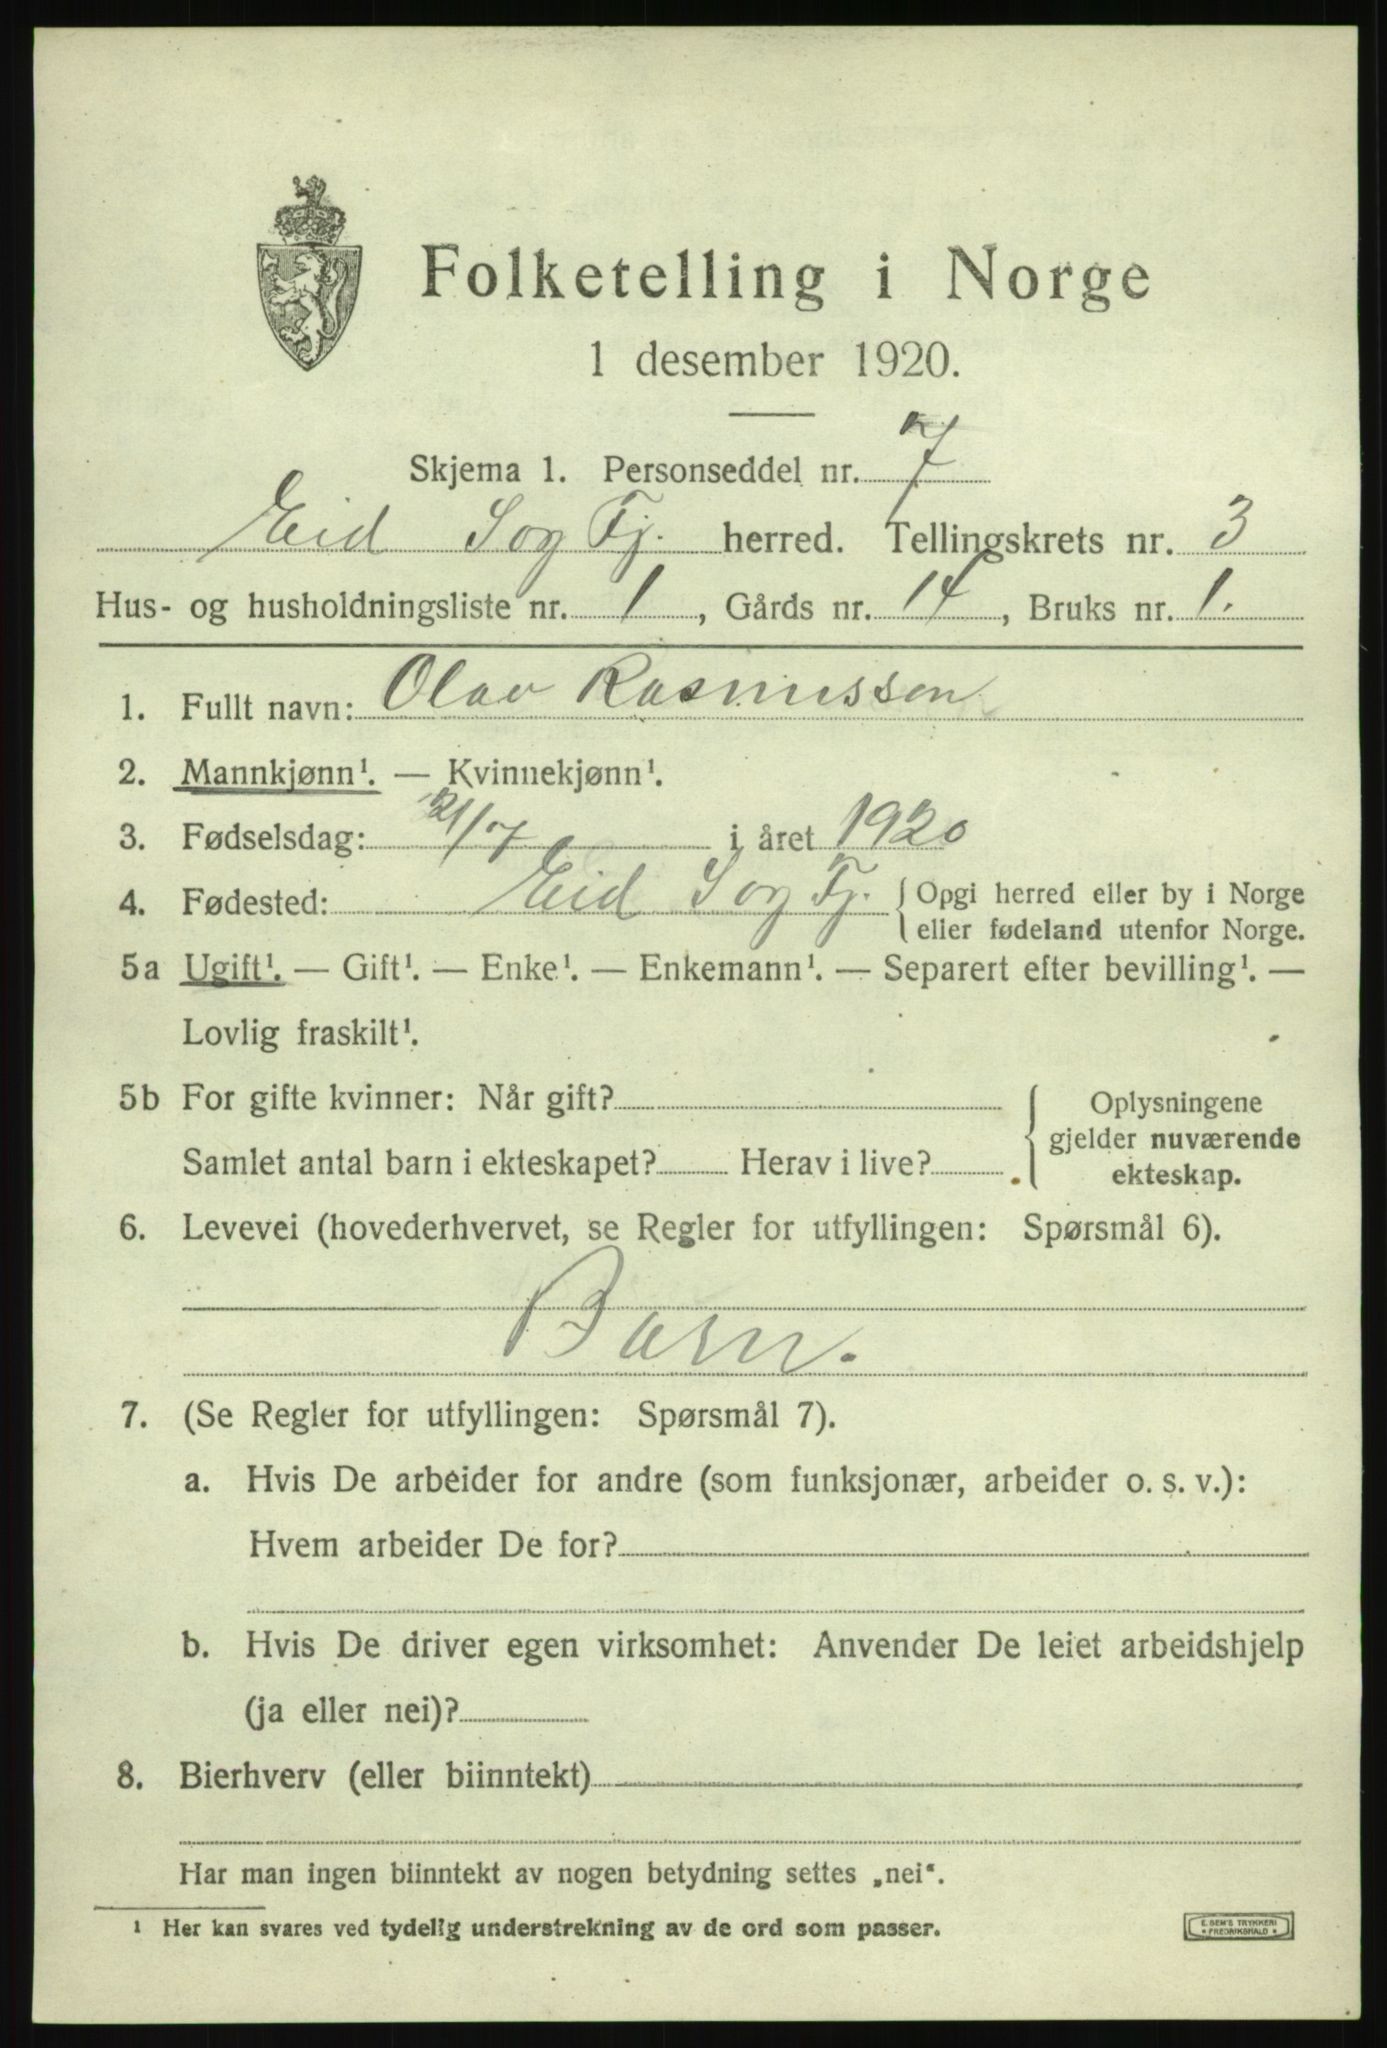 Folketelling i Norge
1 desember 1920.
Skjema 1. Personseddel nr. 7
Eid Sog Fj. herred. Tellingskrets nr. 3
Hus- og husholdningsliste nr. 1, Gårds nr. 14, Bruks nr. 1.
1. Fullt navn: Olav Rasmussen
2. Mannkjønn¹. — Kvinnekjønn¹.
3. Fødselsdag: 21/7 i året 1920
4. Fødested: Eid Sog Fj. { Opgi herred eller by i Norge
eller fødeland utenfor Norge.
5a Ugift¹. — Gift¹. — Enke¹. — Enkemann¹. — Separert efter bevilling¹. —
Lovlig fraskilt¹.
5b For gifte kvinner: Når gift?
Samlet antal barn i ekteskapet? Herav i live?
Oplysningene
gjelder nuværende
ekteskap.
6. Levevei (hovederhvervet, se Regler for utfyllingen: Spørsmål 6).
Barn.
7. (Se Regler for utfyllingen: Spørsmål 7).
a. Hvis De arbeider for andre (som funksjonær, arbeider o. s. v.):
Hvem arbeider De for?
b. Hvis De driver egen virksomhet: Anvender De leiet arbeidshjelp
(ja eller nei)?
8. Bierhverv (eller biinntekt)
Har man ingen biinntekt av nogen betydning settes „nei“.
¹ Her kan svares ved tydelig understrekning av de ord som passer.
E. SEM'S TRYKKERI
* FREDRIKSHALD *